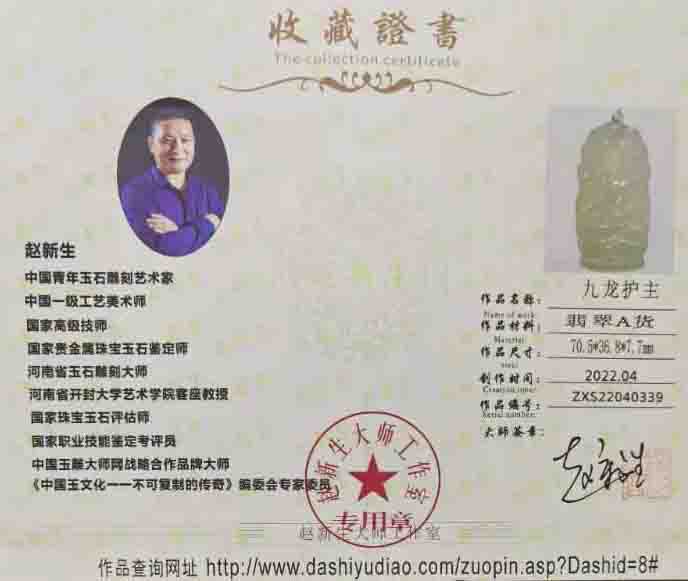 收藏證書
The collection certificate
赵新生
中国青年玉石雕刻艺术家
中国一级工艺美术师
国家高级技师
国家贵金属珠宝玉石鉴定师
河南省玉石雕刻大师
河南省开封大学艺术学院客座教授
国家珠宝玉石评估师
国家职业技能鉴定考评员
中国玉雕大师网战略合作品牌大师
《中国玉文化一一不可复制的传奇》编委会专家委员
作品名称： 九龙护主
Name of work:
作品材料： 翡翠A货
Material:
作品尺寸： 70.5*36.8*7.7mm
创作时间： 2022.04
Creation time:
作品编号： ZXS22040339
Serial number:
大师签章：
赵新生
赵新生大师工作室
专用章
赵新生大师工作室
作品查询网址 http://www.dashiyudiao.com/zuopin.asp?Dashid=8#